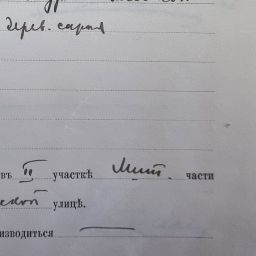 дерев. сарая
въ II участкѣ Мит. части
ской улицѣ.
изводиться